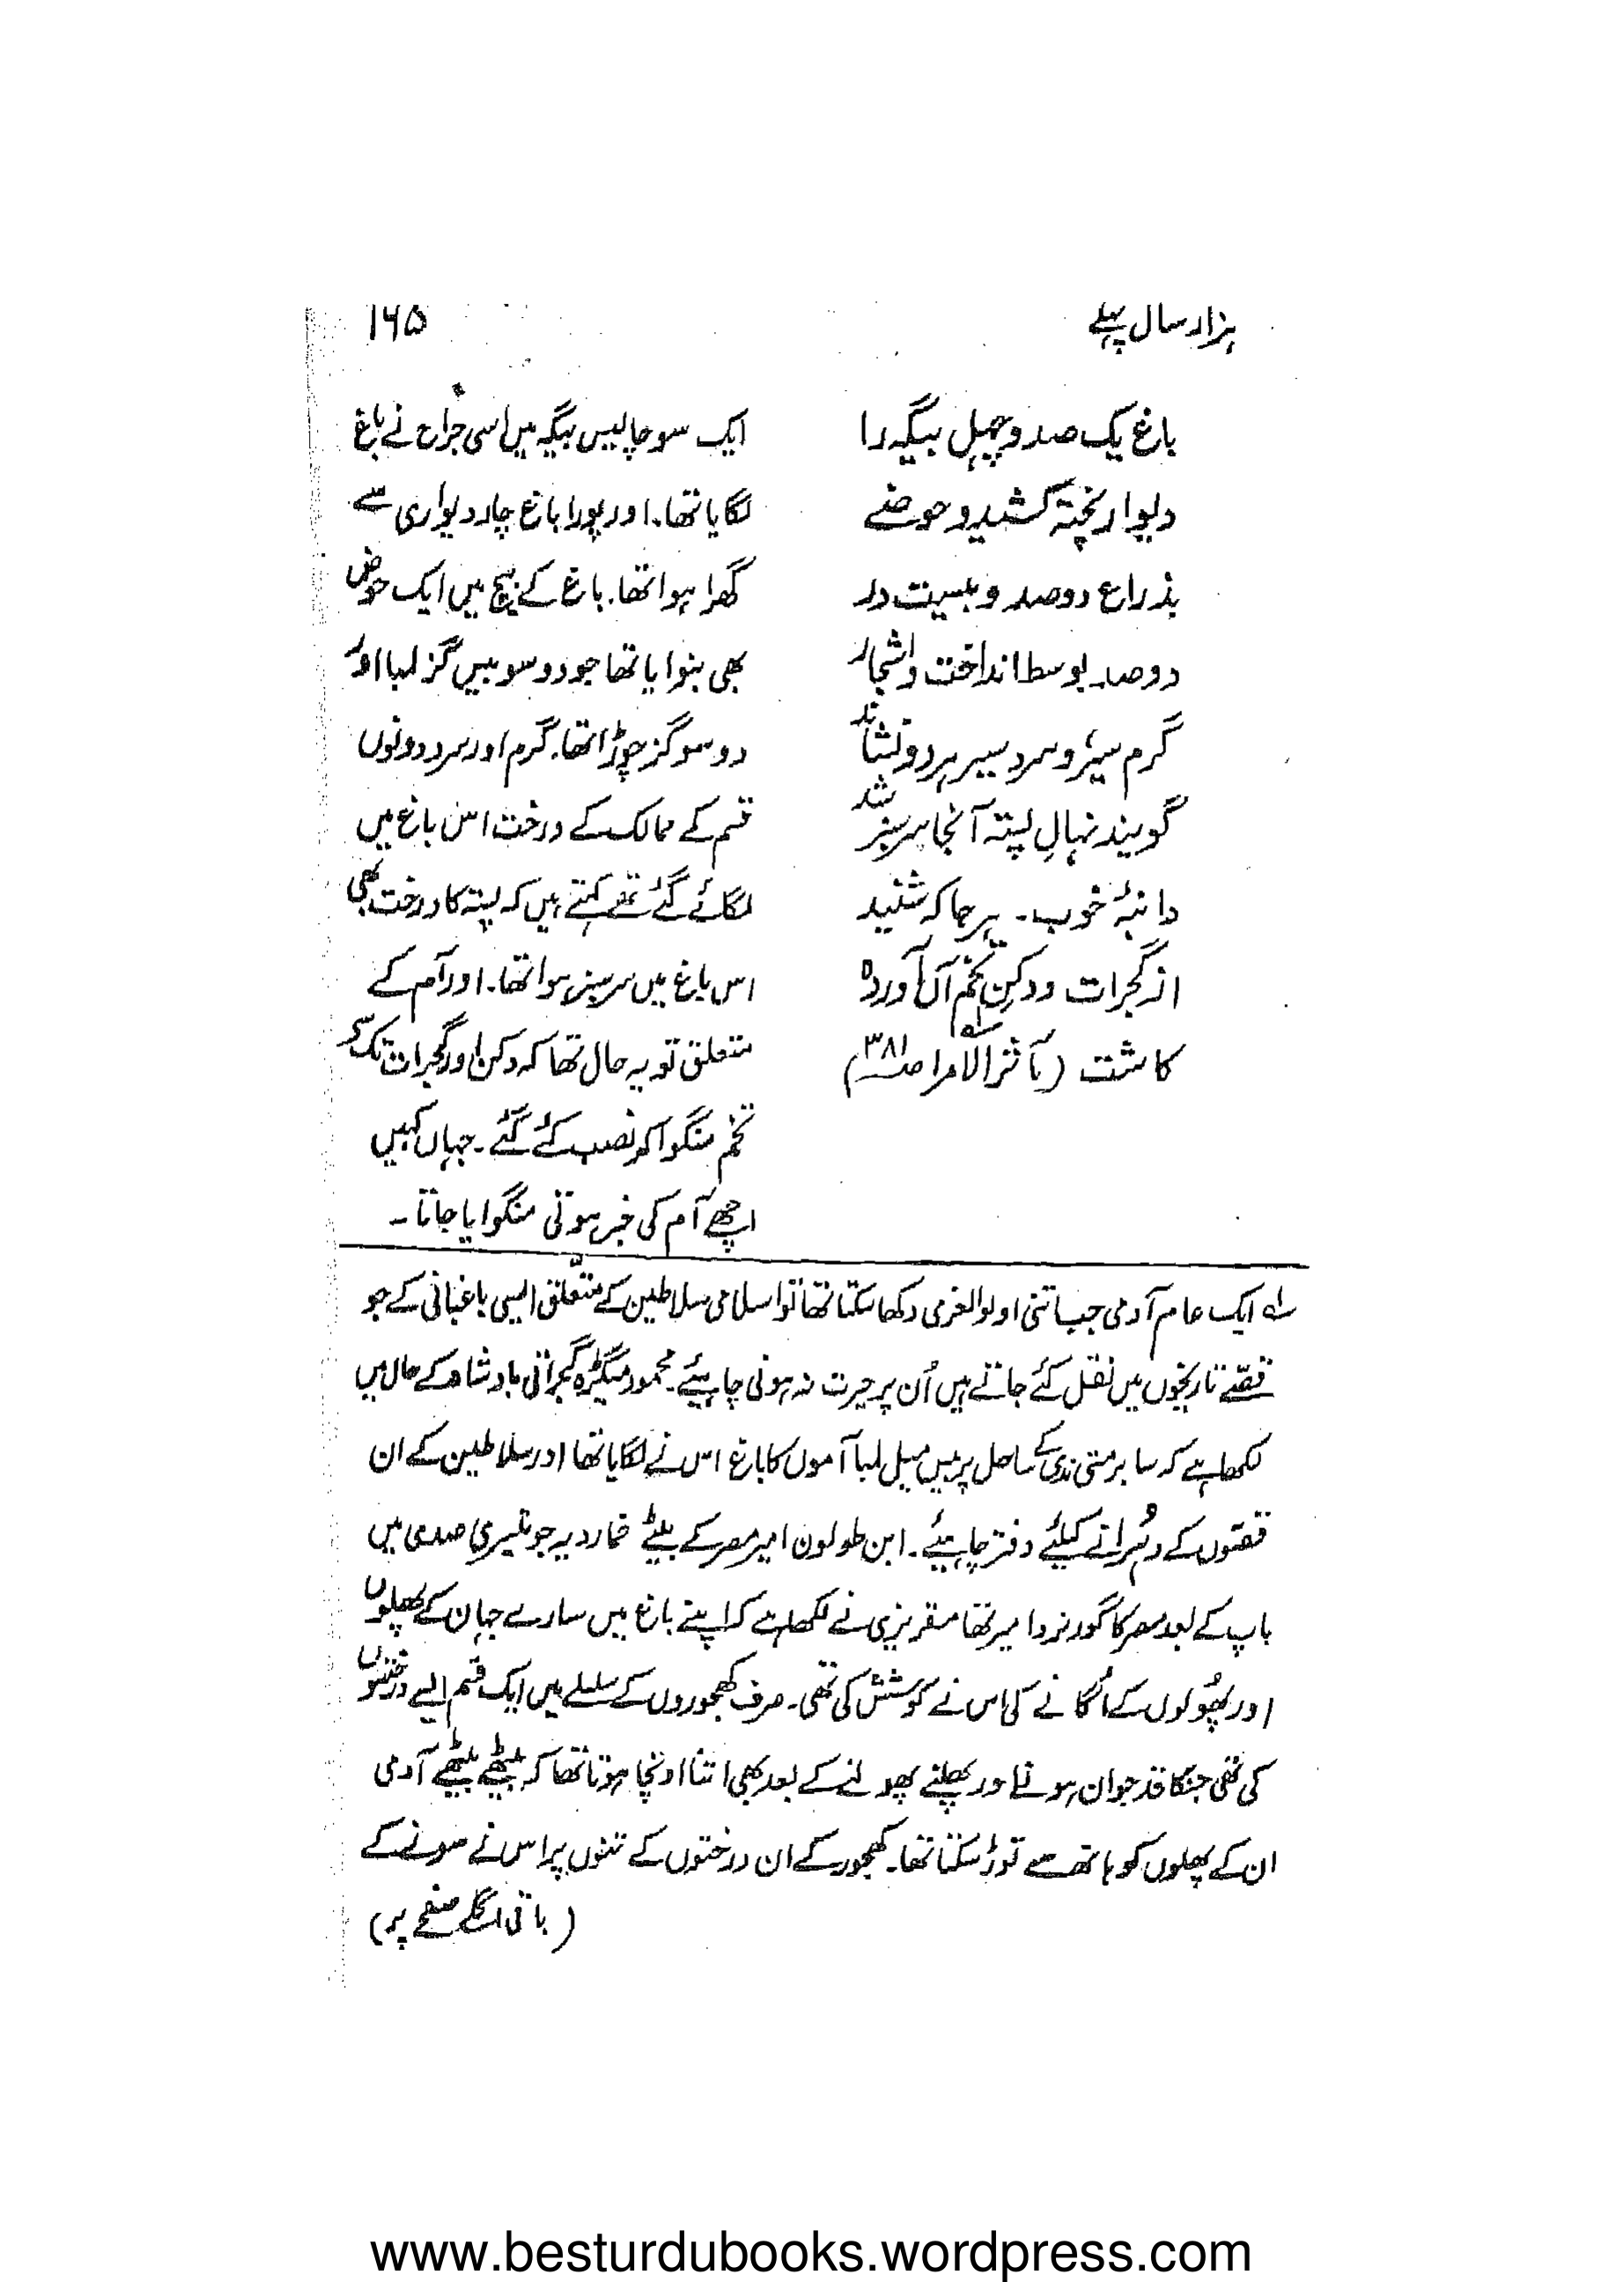 ہزار سال پہلے
۱۶۵
باغ یک صد و چہل بیگہ را
دیوار پختہ کشید و حوضے
بذراع دو صد و بست در
دو صد بوسط انداخت و اشجار
گرم سیر و سرد سیر ہر دو نشاند
گویند نہالِ پستہ آنجا سرسبز شد
دانبۂ خوب ۔ ہر جا کہ شنید
از گجرات و دکن تخم آں آوردہ
کاشت (مآثر الامرا صـ۳۸۱)
ایک سو چالیس بیگہ میں اسی جراح نے باغ
لگایا تھا۔ اور پورا باغ چار دیواری سے
گھرا ہوا تھا۔ باغ کے بیچ میں ایک حوض
بھی بنوایا تھا جو دو سو بیس گز لمبا اور
دو سو گز چوڑا تھا۔ گرم اور سرد دونوں
قسم کے ممالک کے درخت اس باغ میں
لگائے گئے تھے کہتے ہیں کہ پستہ کا درخت بھی
اس باغ میں سرسبز ہوا تھا۔ اور آم کے
متعلق تو یہ حال تھا کہ دکن اور گجرات تک سے
تخم منگوا کر نصب کئے گئے ۔ جہاں کہیں
اچھے آم کی خبر ہوتی منگوایا جاتا ۔
لہ ایک عام آدمی جب اتنی اولوالعزمی دکھا سکتا تھا تو اسلامی سلاطین کے متعلق ایسی باغبانی کے جو
قصّے تاریخوں میں نقل کئے جاتے ہیں اُن پر حیرت نہ ہونی چاہیئے۔ محمود بیگڑہ گجراتی بادشاہ کے حال میں
لکھا ہے کہ سابرمتی ندی کے ساحل پر بیس میل لمبا آموں کا باغ اس نے لگایا تھا اور سلاطین کے ان
قصّوں کے دُہرانے کیلئے دفتر چاہیئے ۔ ابن طولون امیر مصر کے بیٹے خمارویہ جو تیسری صدی میں
باپ کے بعد مصر کا گورنر و امیر تھا مقریزی نے لکھا ہے کہ اپنے باغ میں سارے جہان کے پھلوں
اور پھُولوں کے اُگانے کی اس نے کوشش کی تھی ۔ صرف کھجوروں کے سلسلے میں ایک قسم ایسے درختوں
کی تھی جنکا قد جوان ہونے اور پھلنے پھولنے کے بعد بھی اتنا اونچا ہوتا تھا کہ بیٹھے بیٹھے آدمی
ان کے پھلوں کو ہاتھ سے توڑ سکتا تھا۔ کھجور کے ان درختوں کے تنوں پر اس نے سونے کے
(باقی اگلے صفحے پر)
www.besturdubooks.wordpress.com